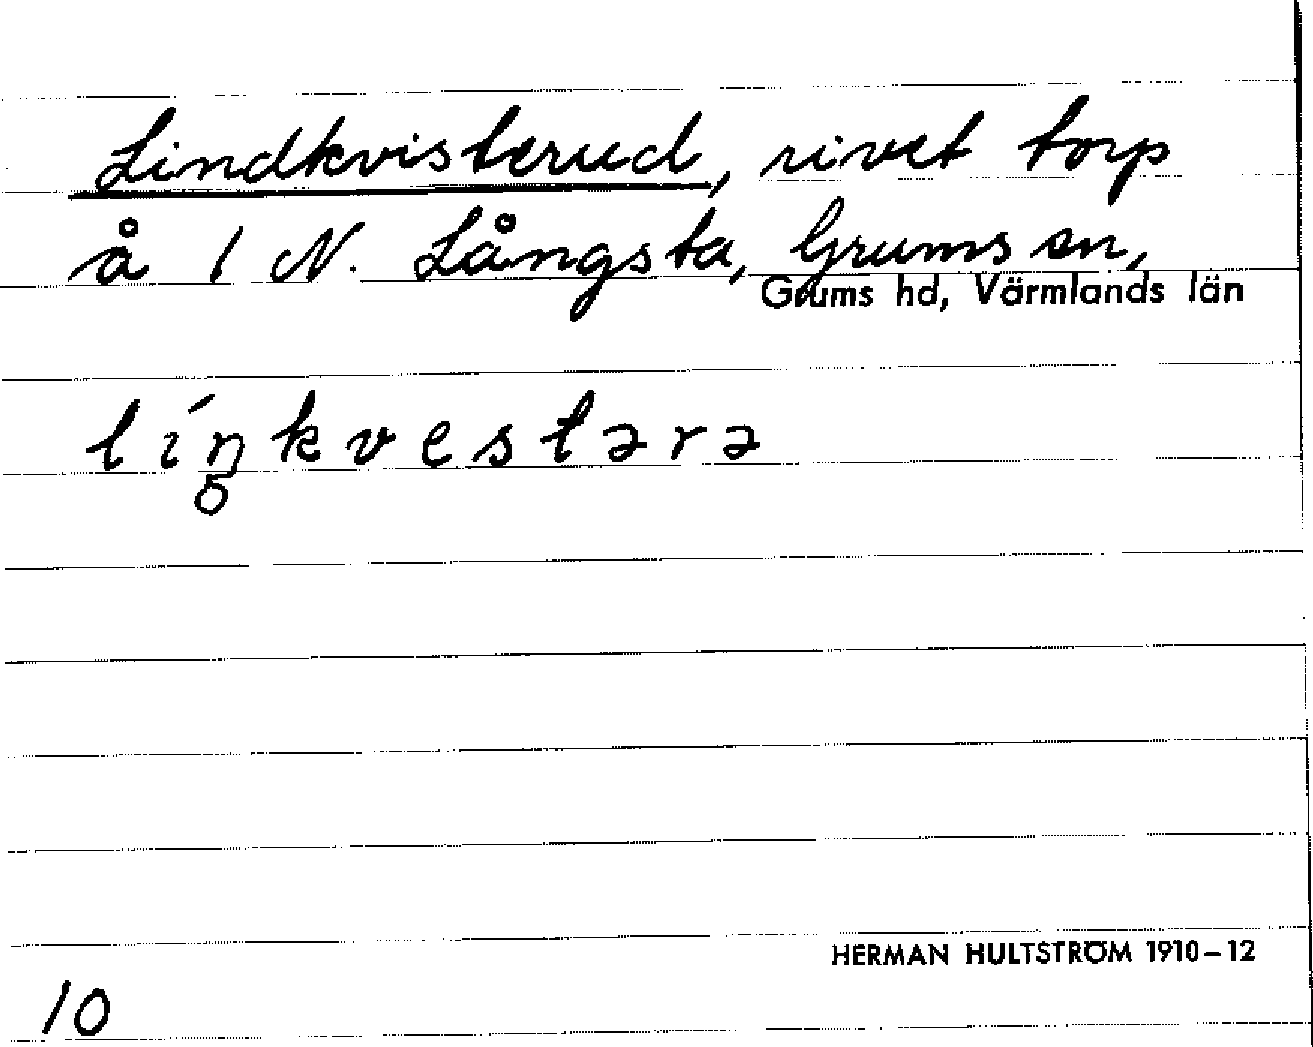 Lindkvisterud, rivet torp
å 1 N. Långsta, Grums sn,
Grums hd, Värmlands län
líŋ̥kvestərə
HERMAN HULTSTRÖM 1910–12
10